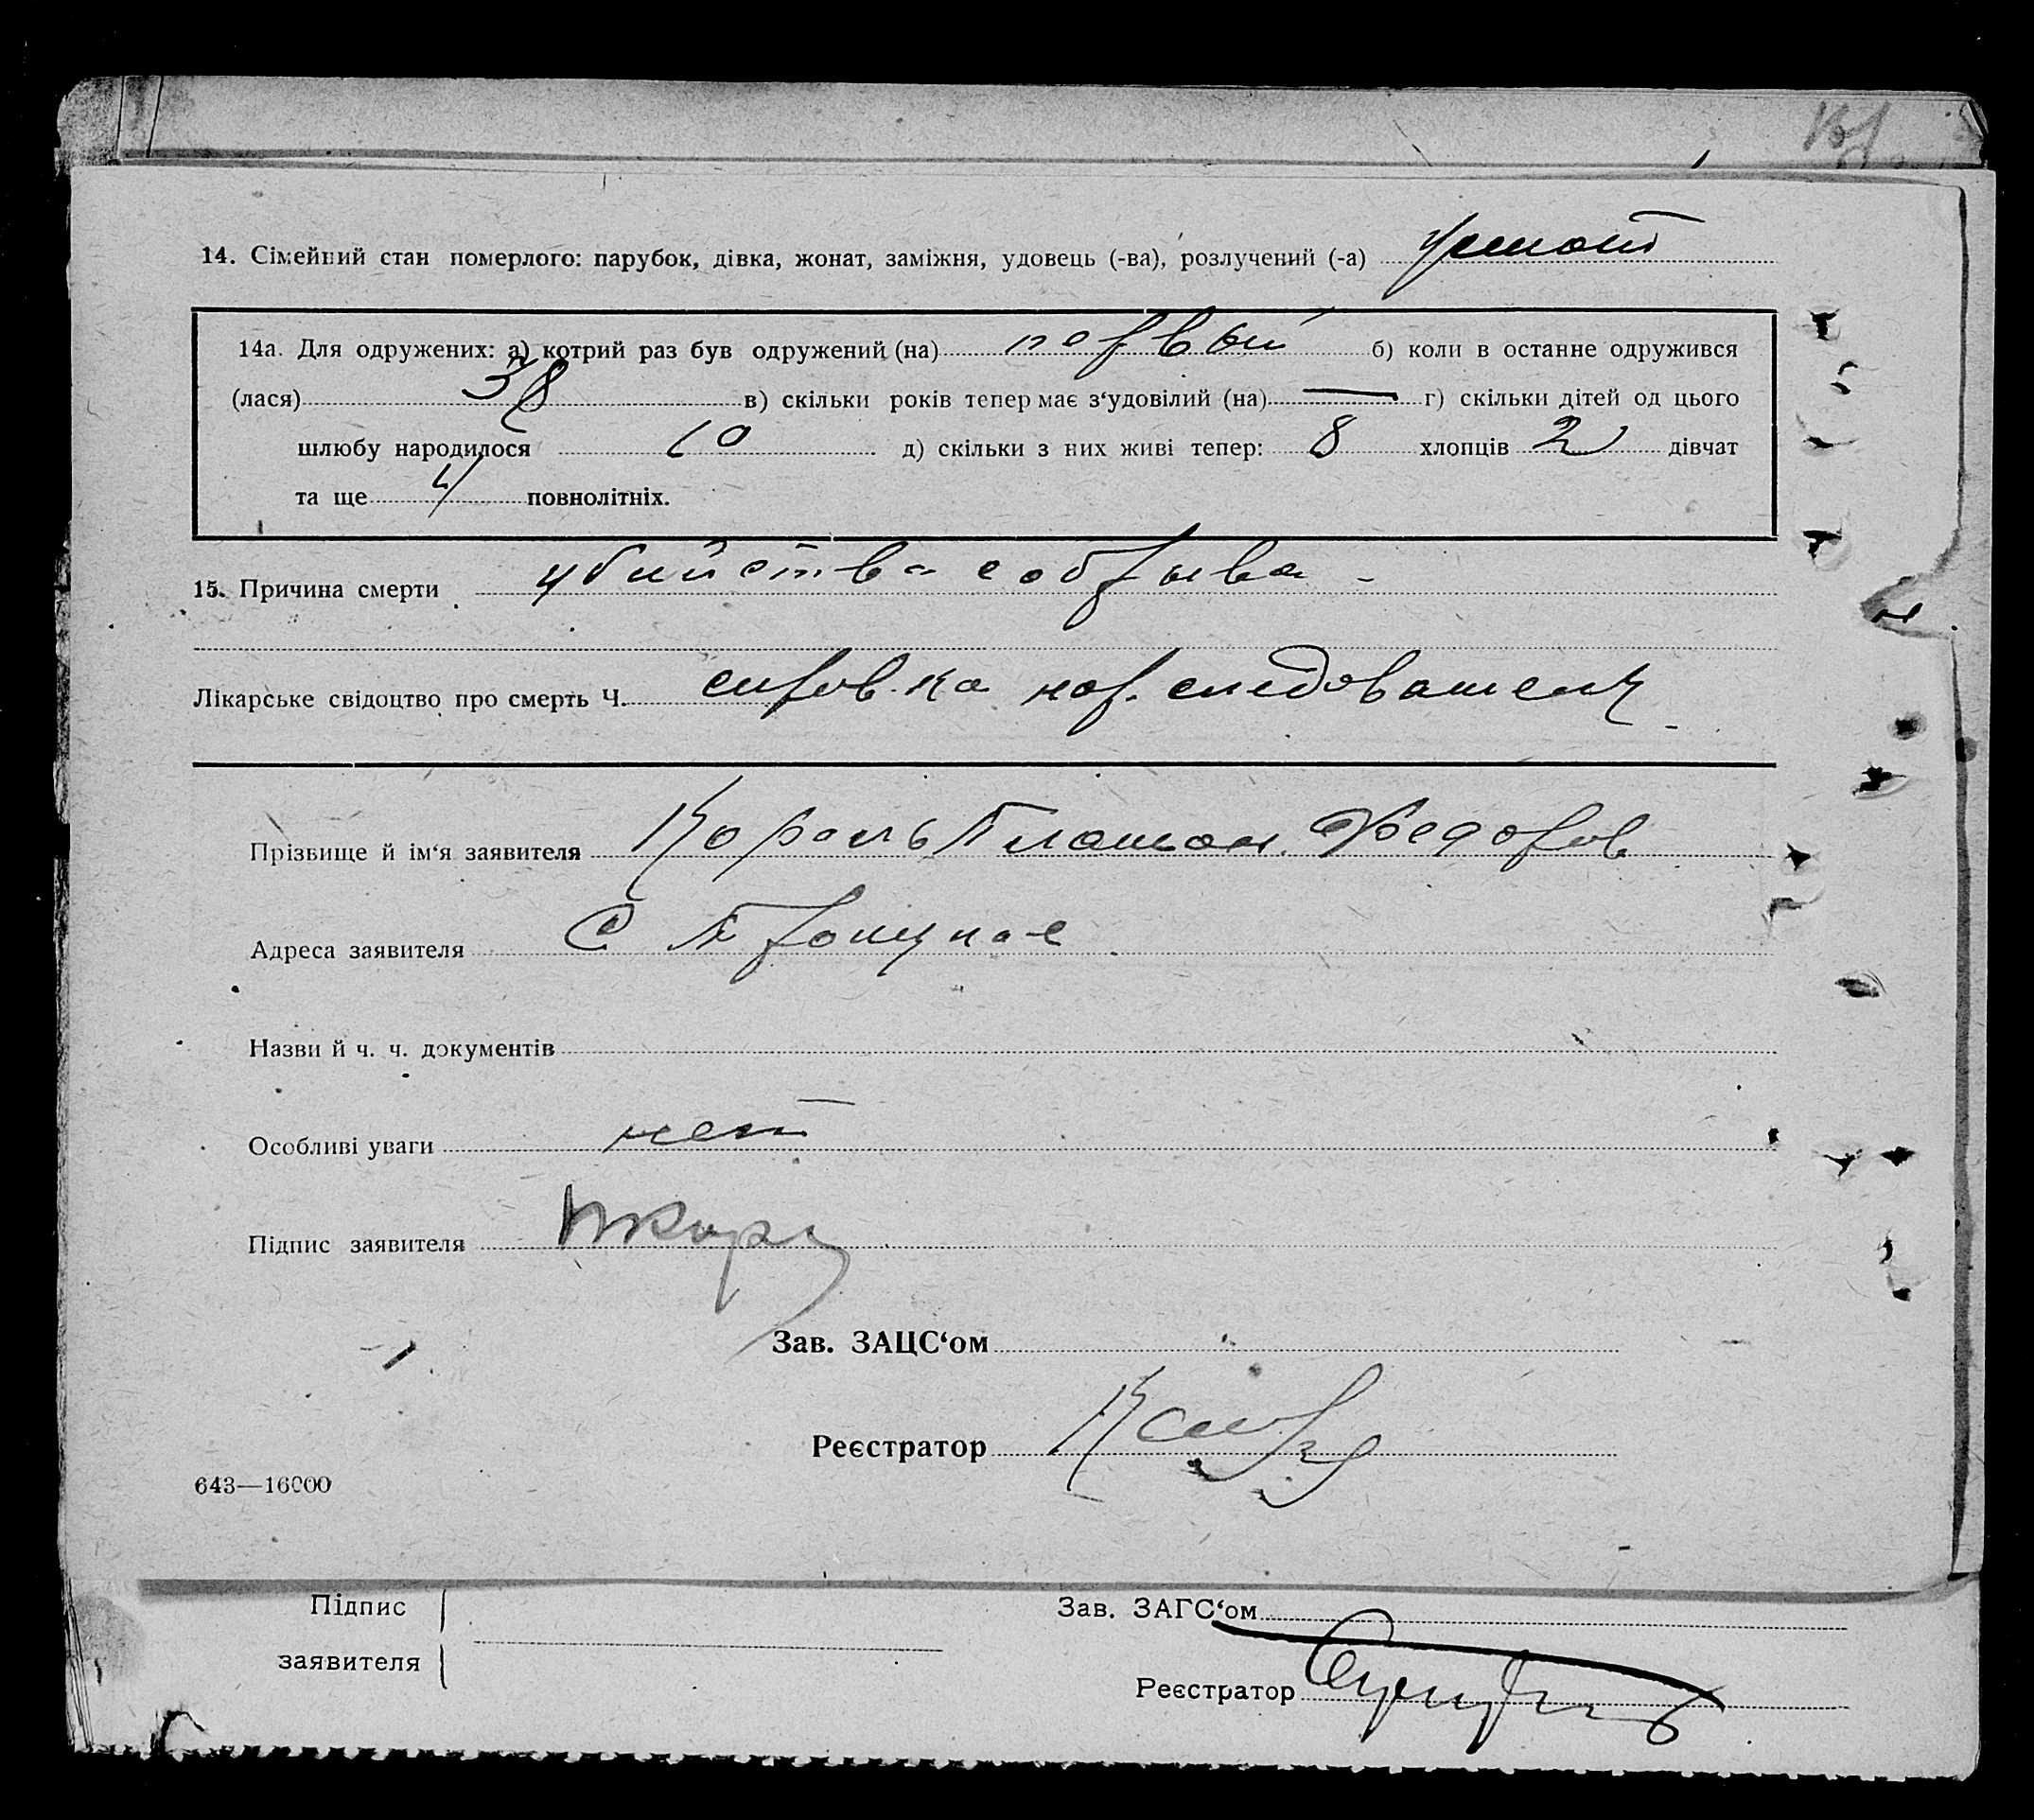 14. Сімейний стан померлого: парубок, дівка, жонат, заміжня, удовець (-ва), розлучений (-а)
14а. Для одружених: а) котрий раз був одружений (на) первый б) коли в останнє одружився
(лася) 38 в) скільки років тепер має з‘удовілий (на) — г) скільки дітей од цього
шлюбу народилося 10 д) скільки з них живі тепер: 8 хлопців 2 дівчат
та ще 4 повнолітніх.
15. Причина смерти убийства с обрыва -
Лікарське свідоцтво про смерть Ч. справка нар. следователя
Прізвище й ім‘я заявителя Король Платон Федоров
Адреса заявителя С
Назви й ч. ч. документів
Особливі уваги нет
Підпис заявителя
Зав. ЗАЦС‘ом
Реєстратор
643—16000
Підпис
заявителя
Зав. ЗАГС‘ом
Реєстратор